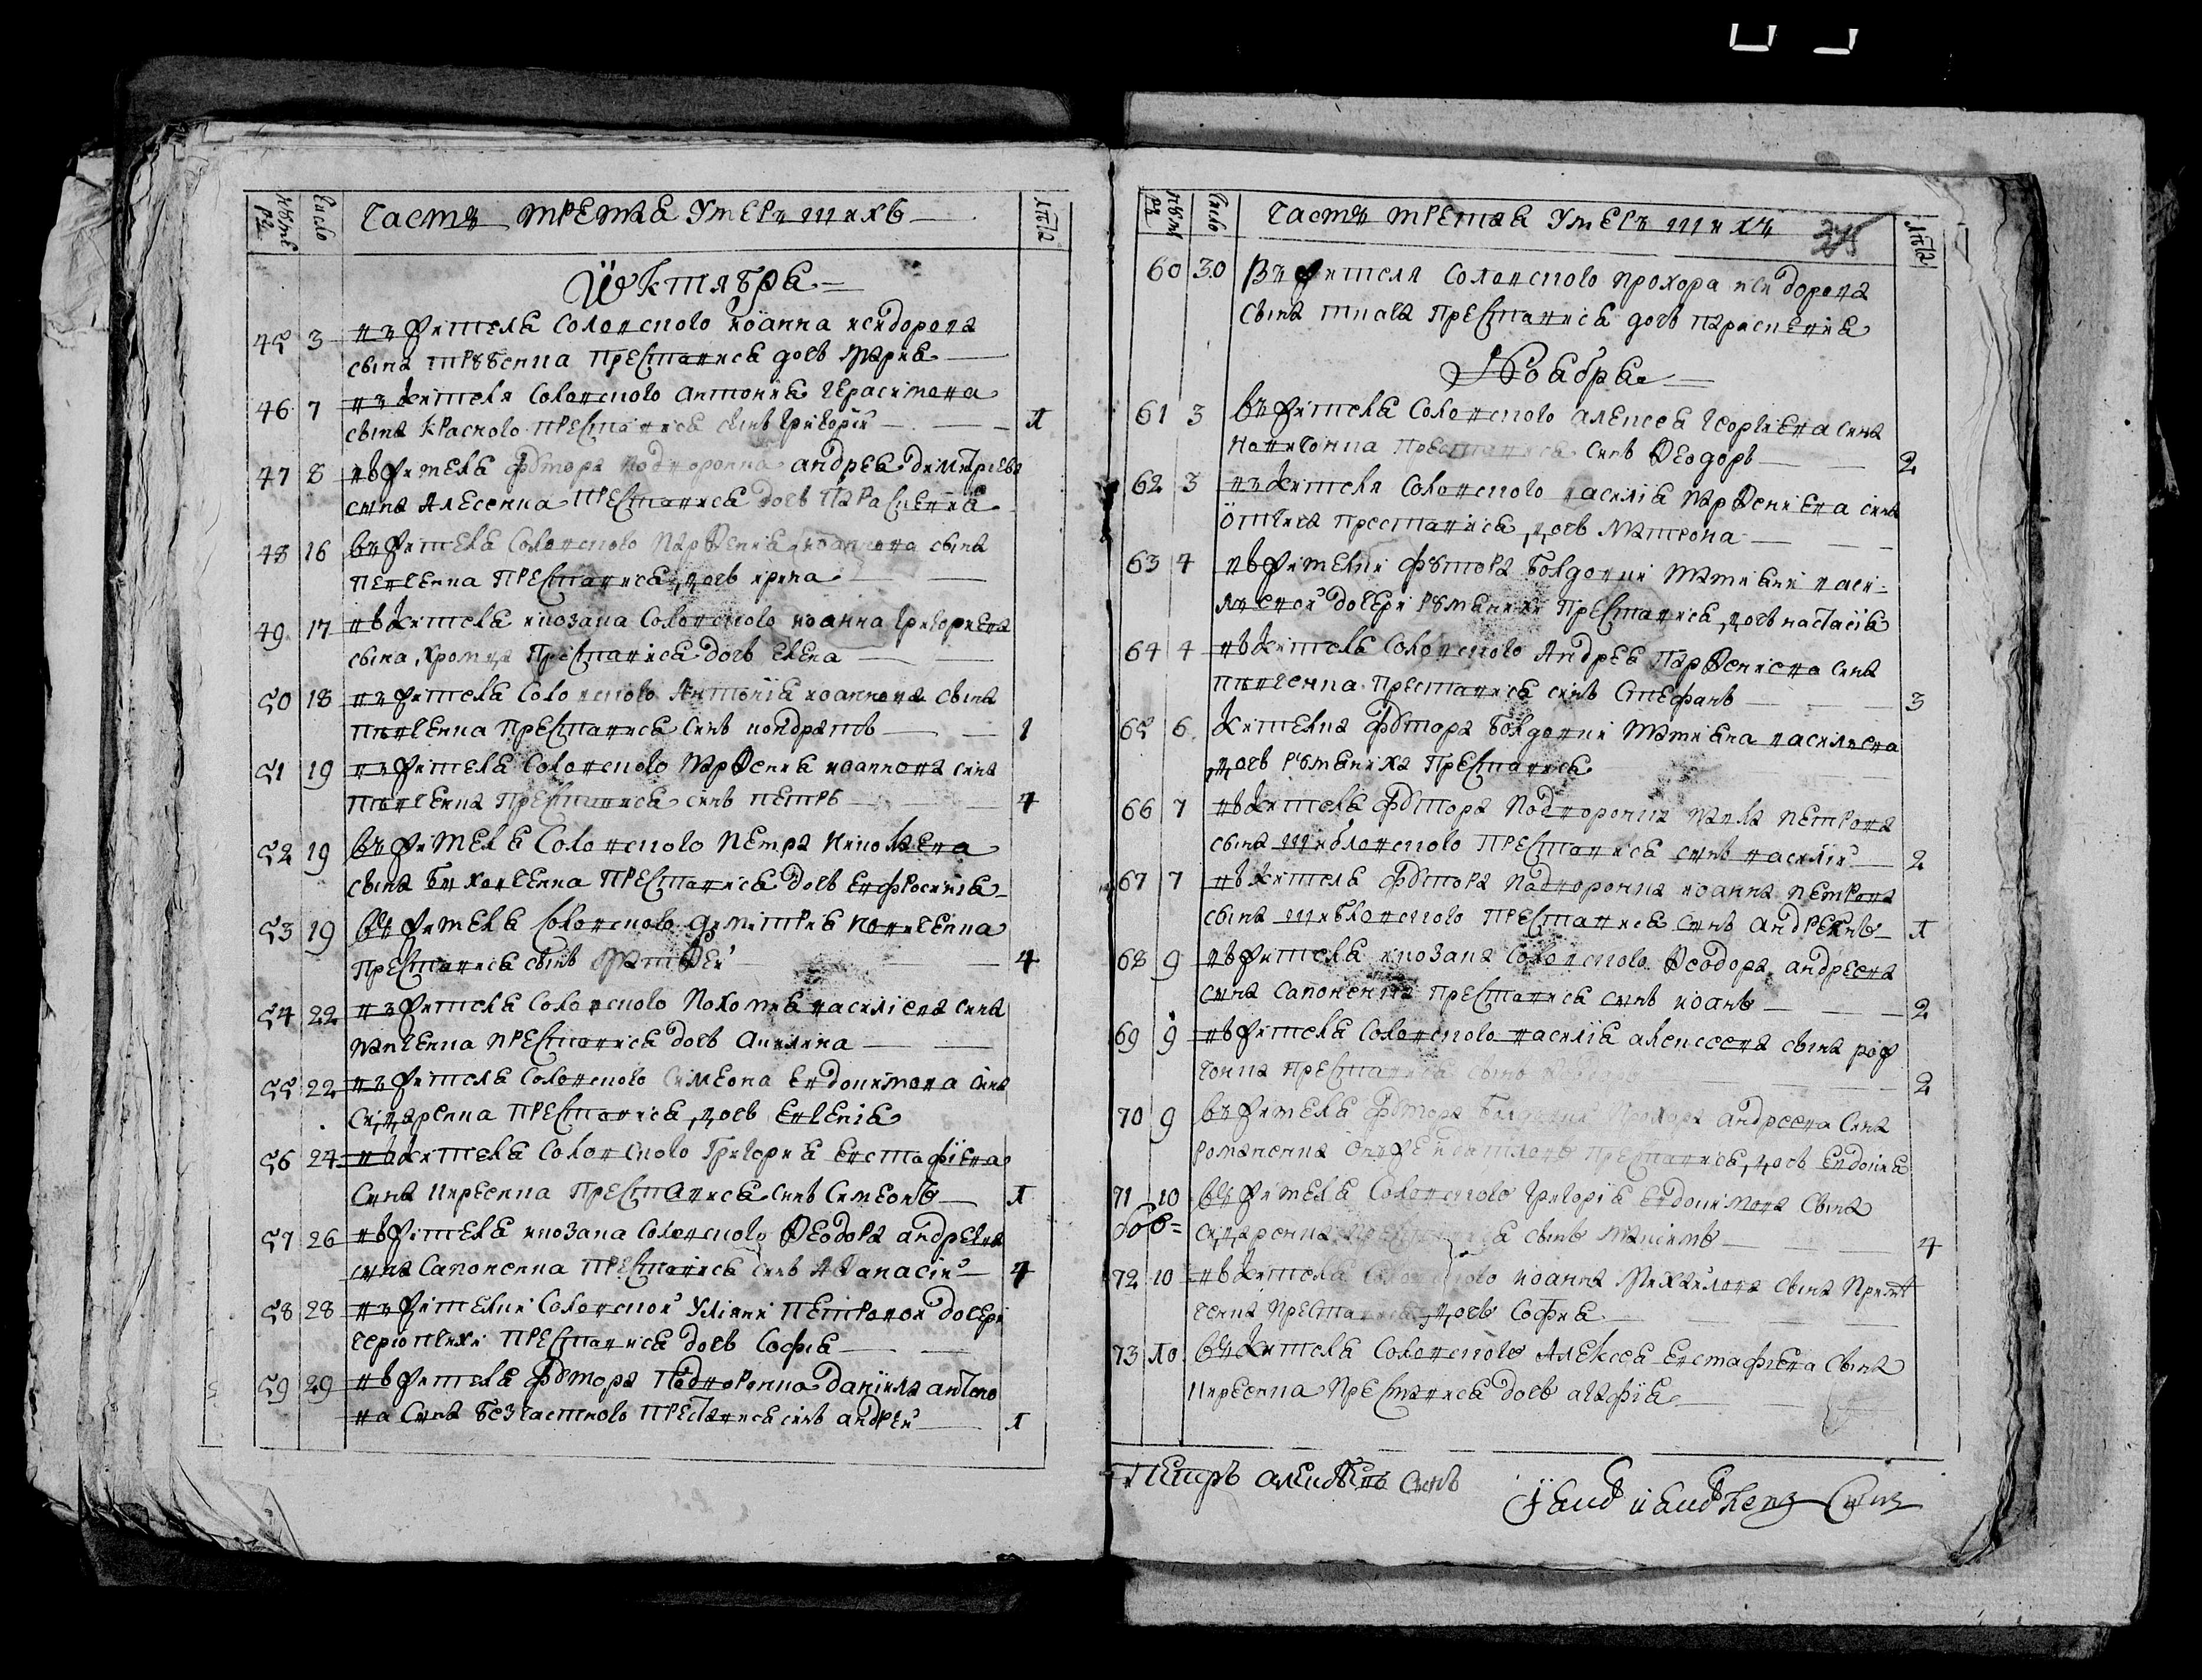 Нумеръ Число Часть третяя умершихъ лѣта
Октября
45 3 въ жителя солонского иоанна исидорова
сына трубенка преставися дочь мария
46 7 въ жителя солонского антония герасимова
сына красного преставися сынъ григорій 1
47 8 въ жителя футора подворонна андрея димитриева
сына алесенка преставися дочь параскевия
48 16 въ жителя солонского парѳения иоаннова сына
певченка преставися дочь ирина
49 17 въ жителя козака солонского иоанна григориева
сына хромця преставися дочь елена
50 18 въ жителя солонского антонія иоаннова сына
певченка преставися синъ кондратъ 1
51 19 въ жителя солонского парѳения иоаннова сина
певченка преставися синъ петръ 4
52 19 въ жителя солонского петра николаева
сына преставися дочь евфросиния
53 19 въ жителя солонского димитрия
преставися сынъ матѳей 4
54 22 въ жителя солонского пахомия василіева сина
преставися дочь акилина
55 22 въ жителя солонского симеона евдокимова сина
сидаренка преставися дочь евгенія
56 24 въ жителя солонского григория евстафіева
сина кирѣенка преставися синъ симеонъ 1
57 26 въ жителя козака солонского ѳеодора андреева
сина сапоненка преставися синъ аѳанасій 4
58 28 въ жителки солонской уліяни петровой дочери
преставися дочь софія
59 29 въ жителя футора подворонна данііла антоно
ва сина безчастного преставися синъ андрей 1
Нумеръ Число Часть третяя умершихъ лѣта
60 30 въ жителя солонского прохора исидорова
сына преставися дочь параскевия
Ноября
61 3 въ жителя солонского алексея георгиева сина
преставися синъ ѳеодоръ 2
62 3 въ жителя солонского василія парѳениева сина
преставися дочь матрона
63 4 въ жителки футора болдовки татияни васи-
левской дочери руманихи преставися дочь настасія
64 4 въ жителя солонского андрея парѳениева сина
певченка преставися синъ стефанъ 3
65 6 жителка футора болдовки татияна василиева
дочь руманиха преставися
66 7 въ жителя футора подворонна якова петрова
сына преставися синъ василій 2
67 7 въ жителя футора подворонна иоанна петрова
сына преставися синъ андреянъ 1
68 9 въ жителя козака солонского ѳеодора андреева
сина сапоненка преставися синъ иоанъ 2
69 9 въ жителя солонского василія алексеева сына рож
чонка преставися сынъ 2
70 9 въ жителя футора прохора андреева сина
романенка преставися дочь евдокия
71 10 въ жителя солонского григорія евдокимова сына
сидаренка преставися сынъ максимъ 4
72 10 въ жителя солонского иоанна михайлова сына
преставися дочь софия
73 10 въ жителя солонского алексея евстафиева сына
кирѣенка преставися дочь агафія
Петръ синъ